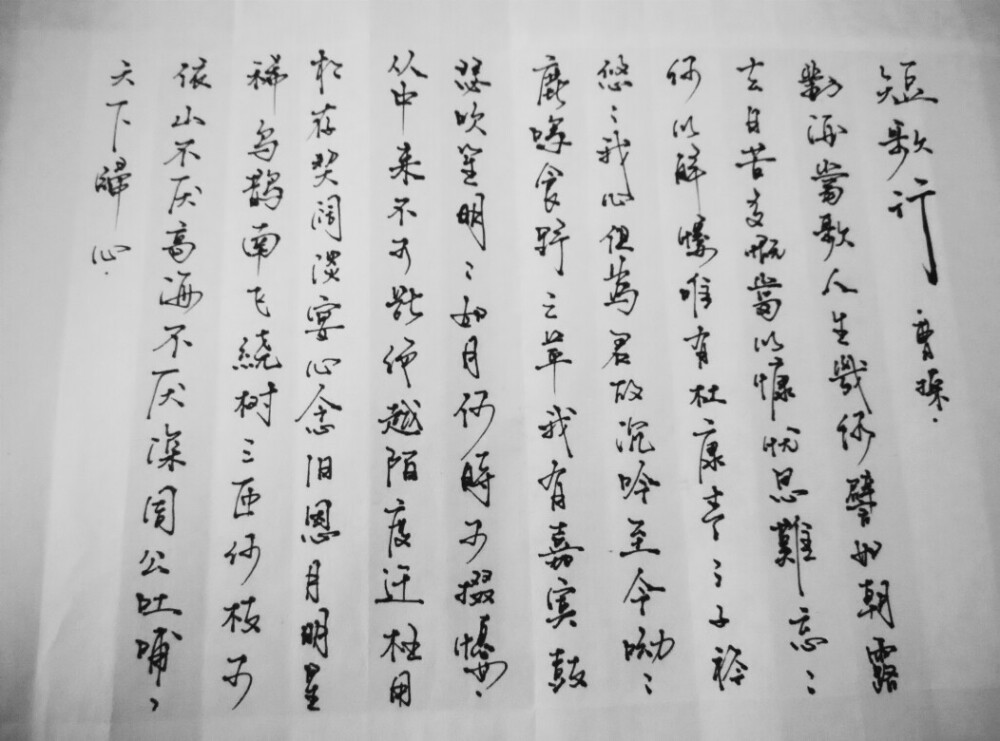 短歌行 曹操.
對酒當歌人生幾何譬如朝露
去日苦多慨當以慷忧思難忘〻
何以解憂唯有杜康青〻子衿
悠〻我心但為君故沉吟至今呦〻
鹿鳴食野之苹我有嘉宾鼓
瑟吹笙明〻如月何時可掇憂.
从中来不可断绝越陌度阡枉用
相存契阔谈宴心念旧恩月明星
稀乌鹊南飞绕树三匝何枝可
依山不厌高海不厌深周公吐哺、
天下歸心.